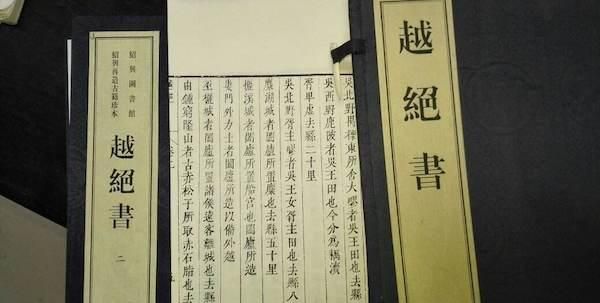 越絕書
吳北野禺櫟東所舍大疁者吳王田也去縣
吳西野鹿陂者吳王田也今分為耦瀆
胥卑虛去縣二十里
吳北野胥主疁者吳王女胥主田也去縣八
麋湖城者闔廬所置麋也去縣五十里
欐溪城者闔廬所置船宮也闔廬所造
婁門外力士者闔廬所造以備外越
巫欐城者闔廬所置諸侯遠客離城也去
由鍾窮隆山者古赤松子所取赤石脂也去
紹興圖書館
紹興再造古籍珍本
越絕書 二